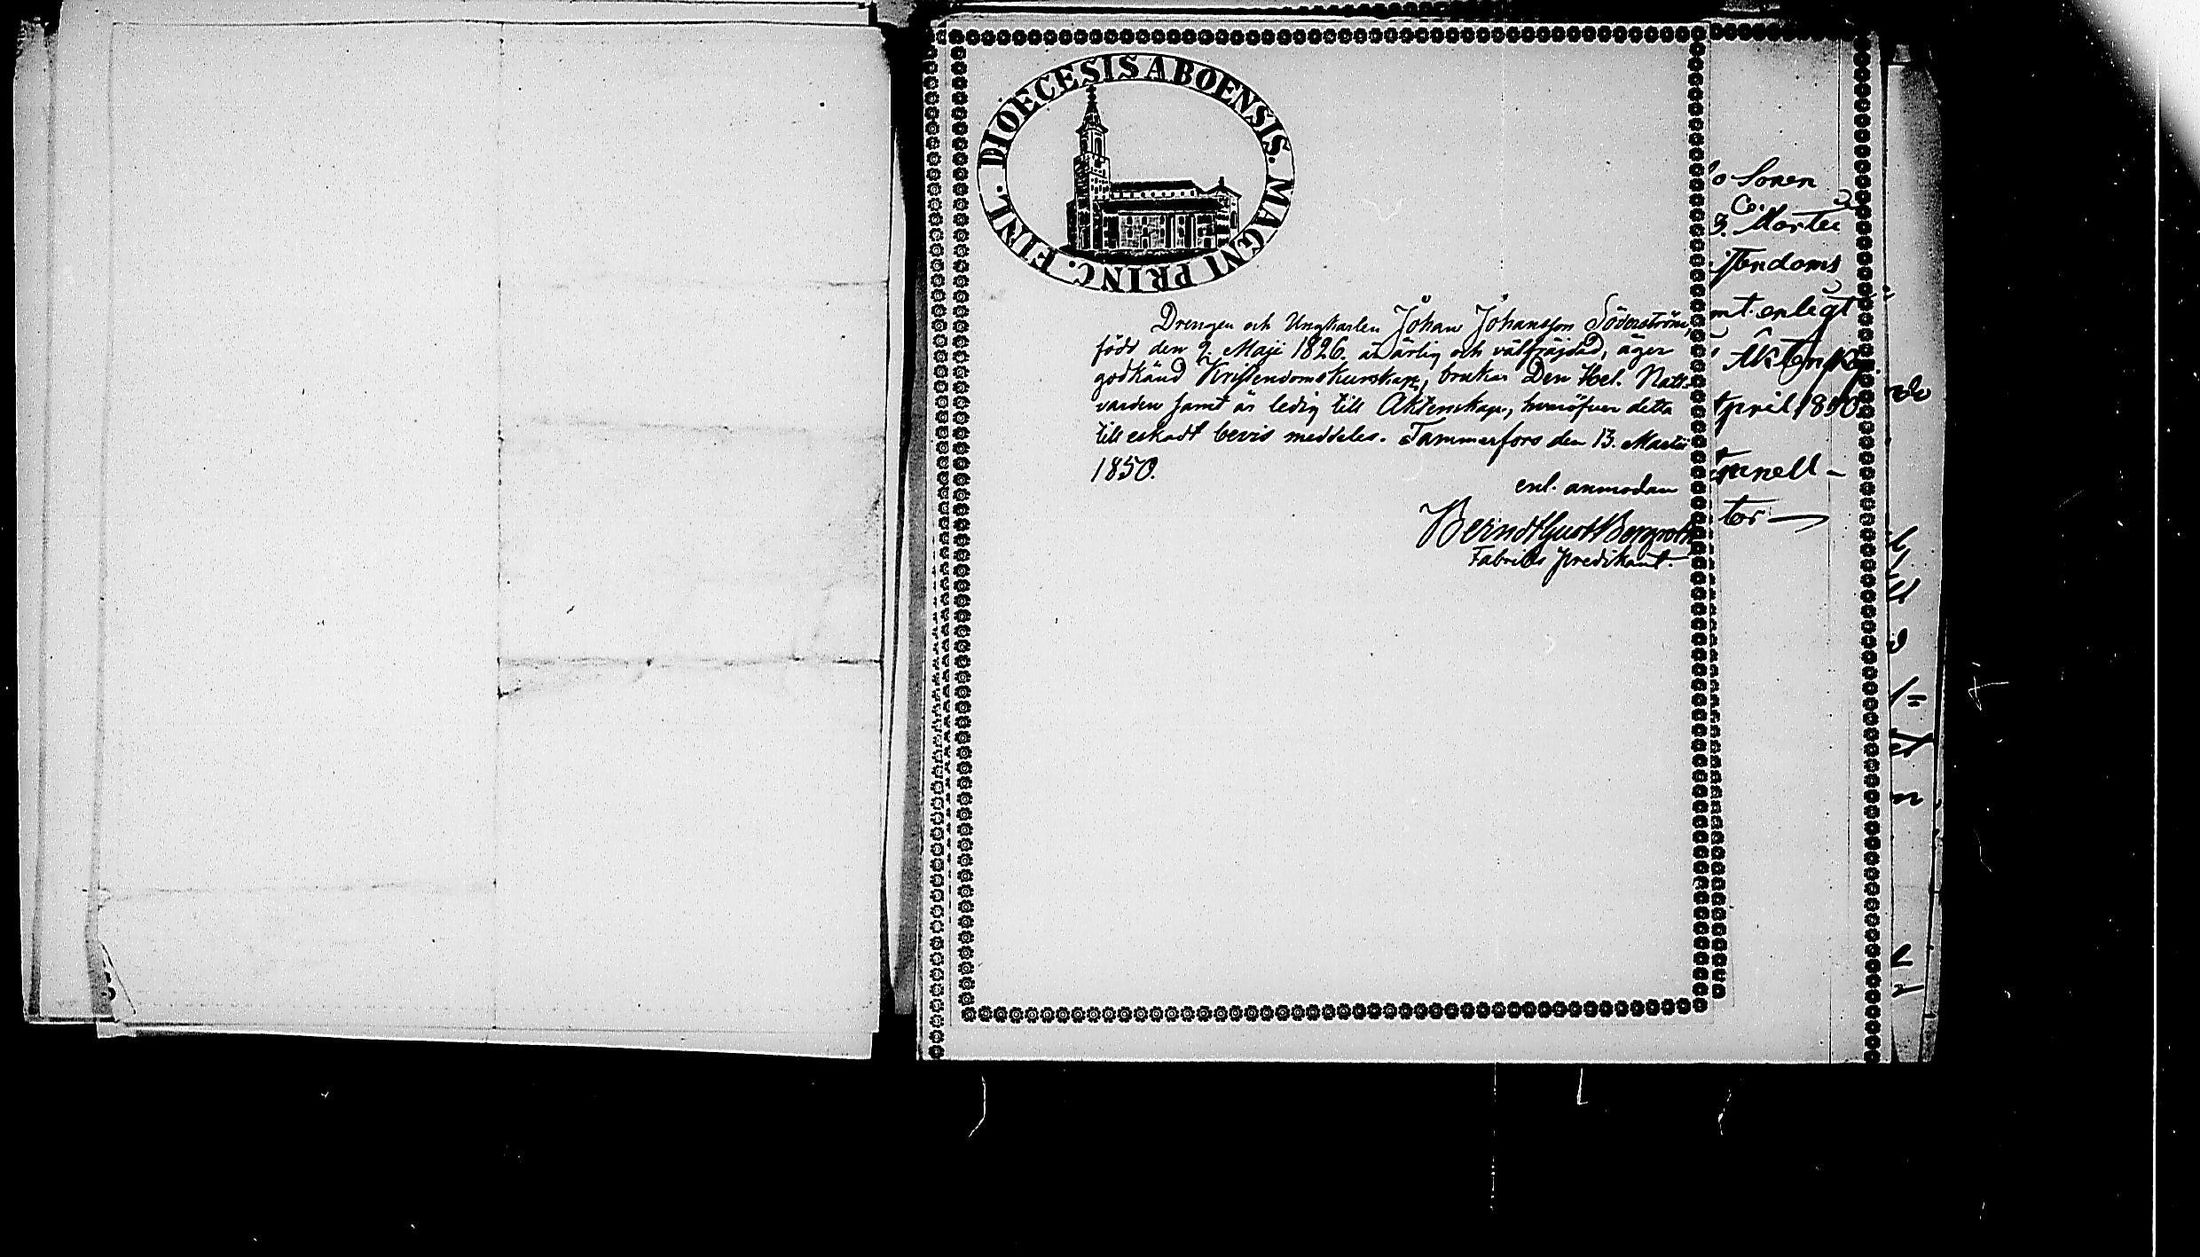 DIOECESIS ABOENSIS. MAGNI PRINC. FINL.
Drengen och Ungkarlen Johan Johansson Söderström,
född den 9. Maji 1826. är ärlig och välfräjdad, äger
godkänd Kristendomskunskap, brukar Den Hel. Natt-
varden samt är ledig till Äktenskap, hvaröfver detta
till eskadt bevis meddeles. Tammerfors den 13. Martii
1850.
enl. anmodan
Berndt Gust Bergroth
Fabriks predikant.
Sonen
Co.
Martii
stendoms
mt. enligt
Äktensk
April 1850
tor